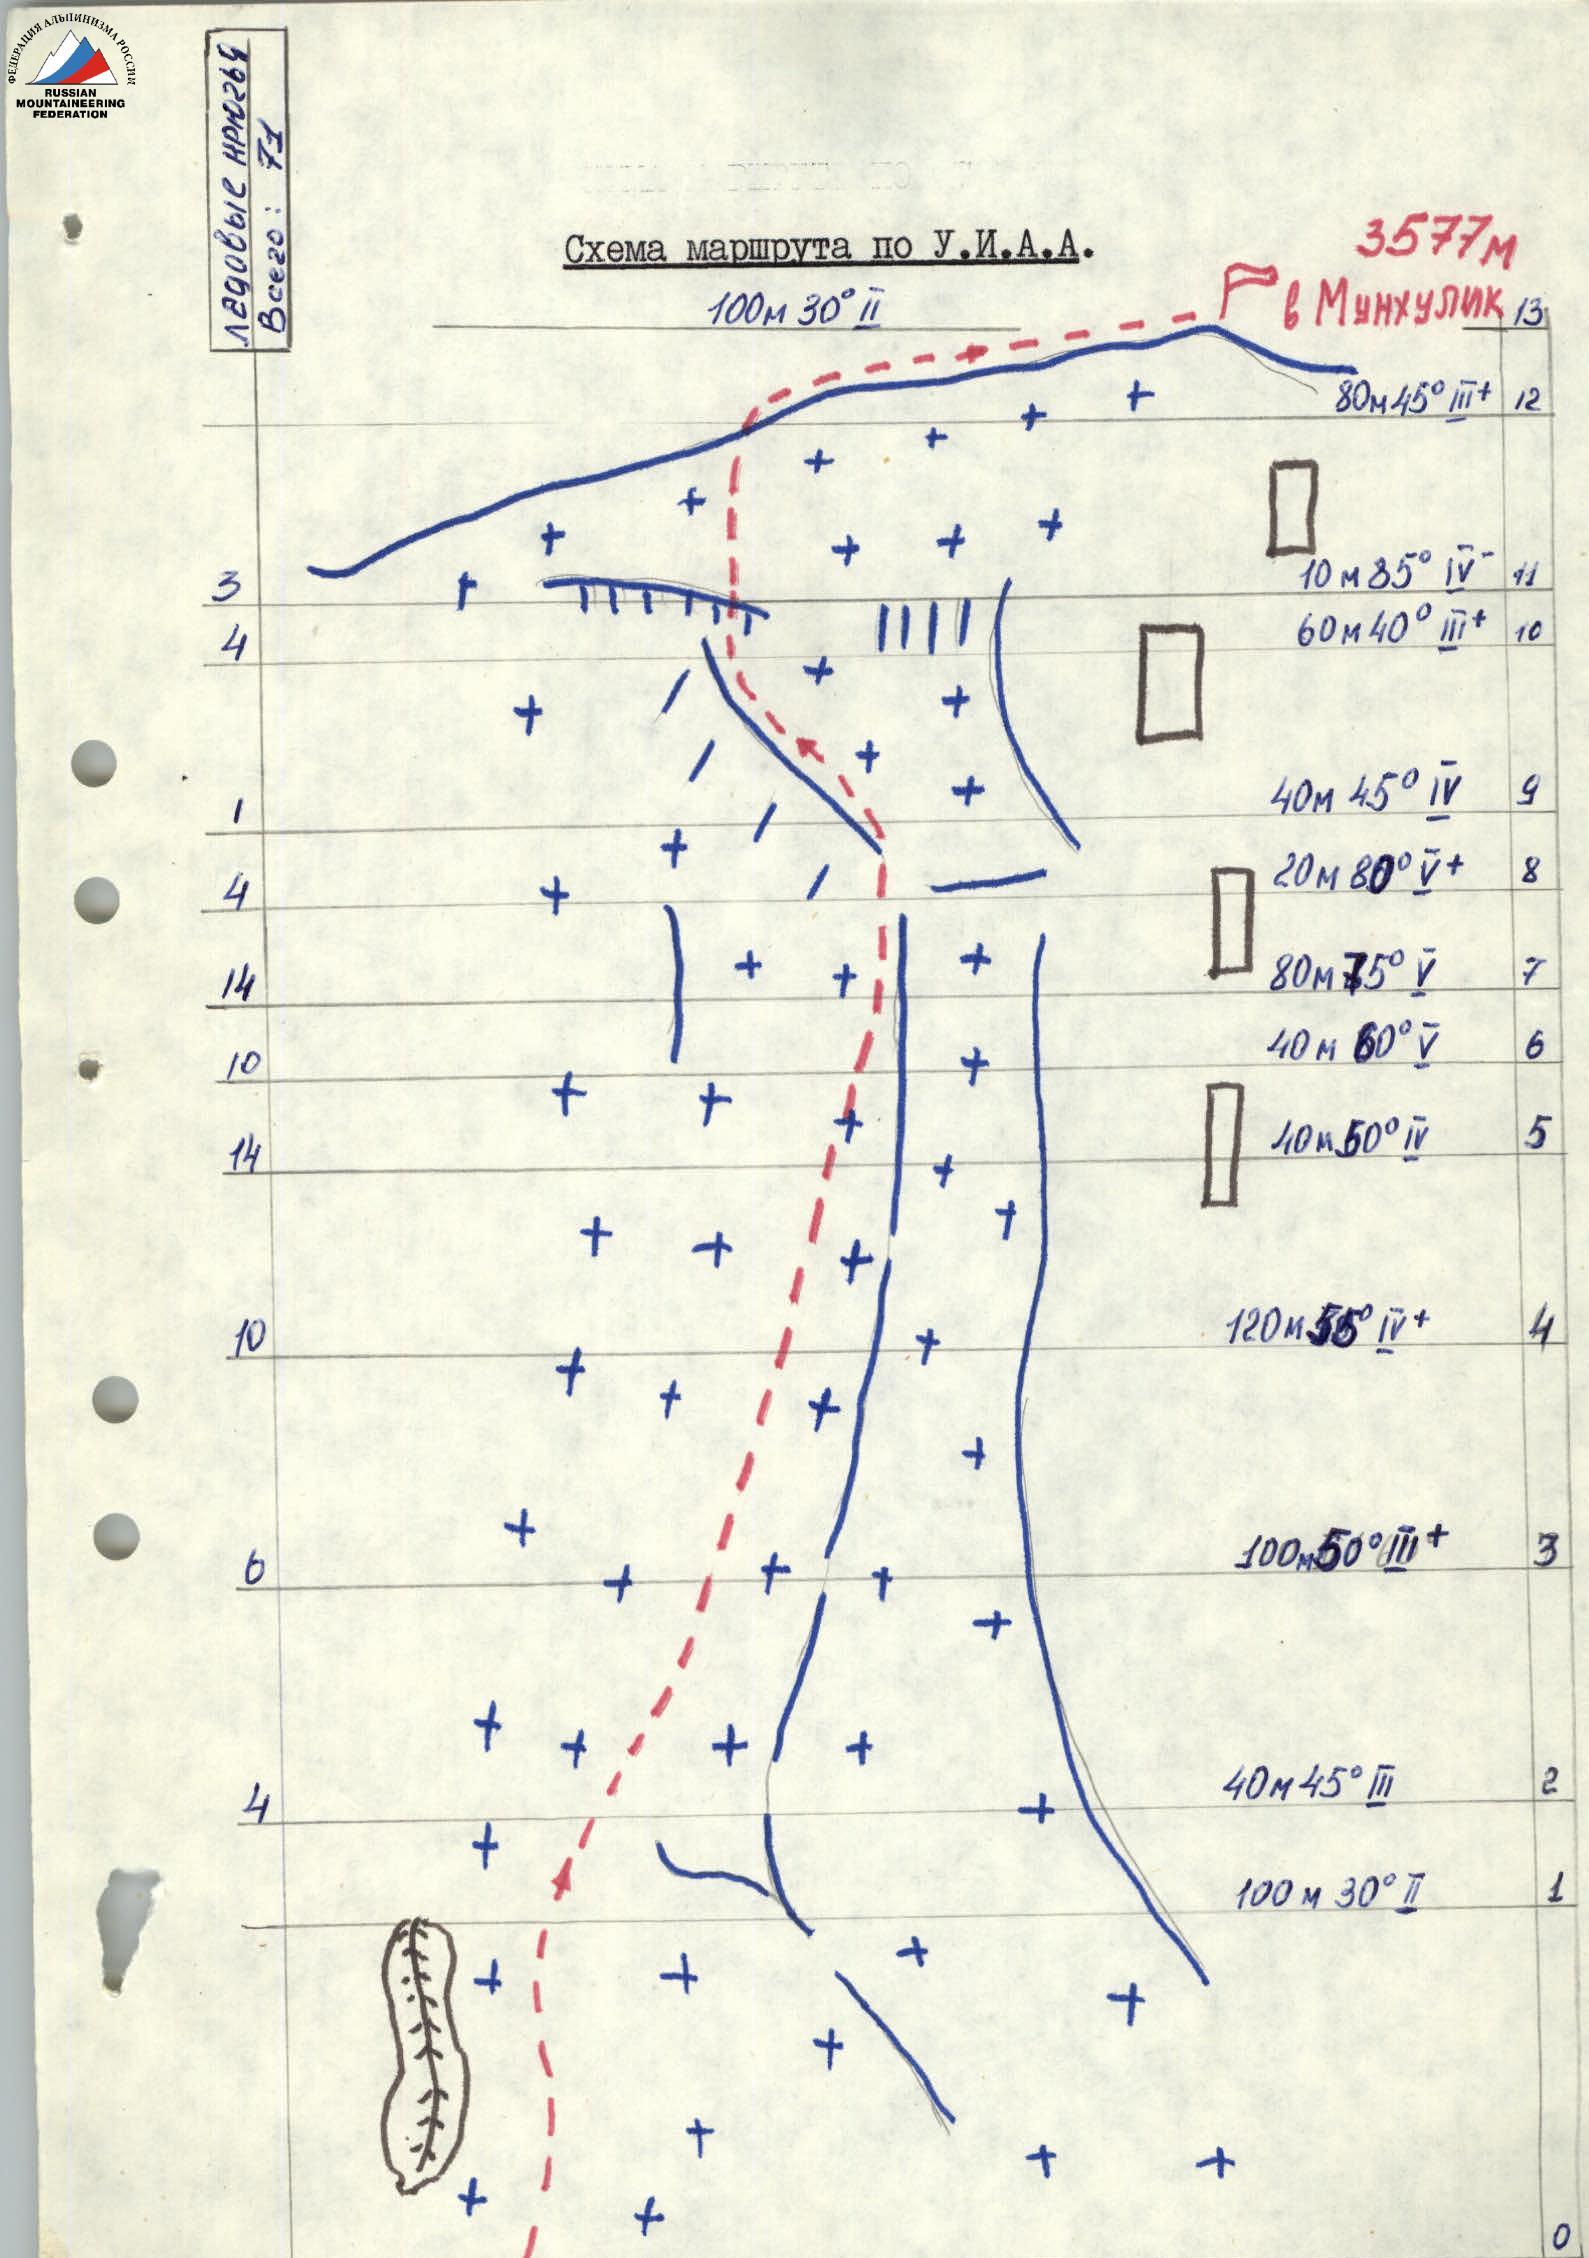 ФЕДЕРАЦИЯ АЛЬПИНИЗМА РОССИИ
RUSSIAN
MOUNTAINEERING
FEDERATION
Ледовые крючья
Всего: 71
Схема маршрута по У.И.А.А.
3577м
в Мунхулик
100м 30° II
13
80м 45° III+ 12
3 10м 85° IV- 11
4 60м 40° III+ 10
1 40м 45° IV 9
4 20м 80° V+ 8
14 80м 75° V 7
10 40м 60° V 6
14 40м 50° IV 5
10 120м 55° IV+ 4
6 100м 50° III+ 3
4 40м 45° III 2
100м 30° II 1
0